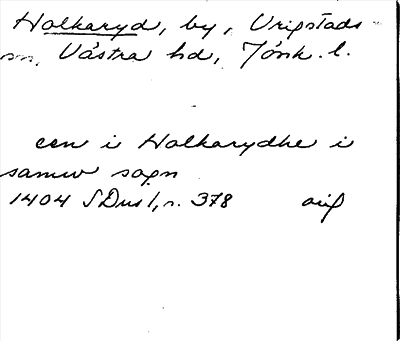 Holkaryd, by, Vrigstads
sn, Västra hd, Jönk. l.
een i Holkarydhe i
samw sogn
1404 SDns 1, n. 378 orig